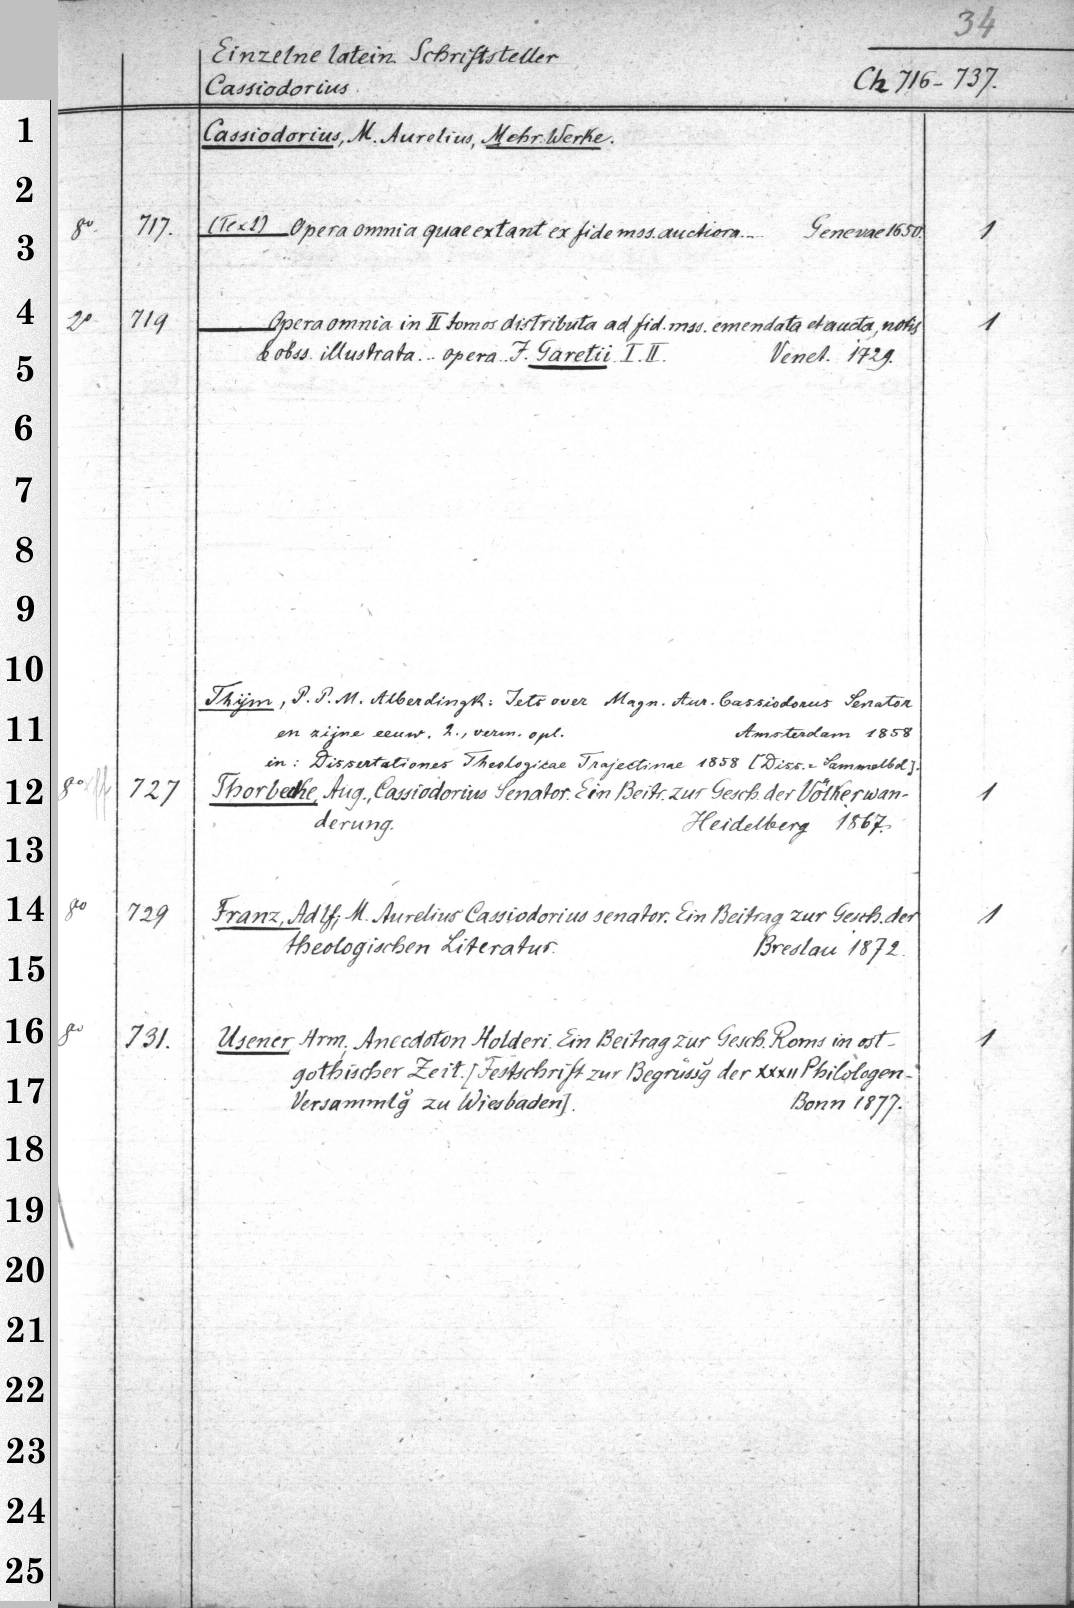 34
Einzelne latein. Schriftsteller
Cassiodorius.
Ch 716-737.
1
Cassiodorius, M. Aurelius, Mehr. Werke.
2
8° 717. (Text) Opera omnia quae extant ex fide mss. auctiora... Genevae 1650. 1
3
4
2° 719 Opera omnia in II tomos distributa ad fid. mss. emendata et aucta, notis 1
& obss. illustrata... opera.. J. Garetii. I. II. Venet. 1729.
5
6
7
8
9
10
Thijm, P. P. M. Alberdingk: Iets over Magn. Aur. Cassiodorus Senator
11
en zijne eeuw. 2., verm. opl. Amsterdam 1858
in: Dissertationes Theologicae Trajectinae 1858 [Diss.-Sammelbd].
12
8° 727 Thorbecke, Aug., Cassiodorius Senator. Ein Beitr. zur Gesch. der Völkerwan- 1
derung. Heidelberg 1867.
13
14
8° 729 Franz, Adlf, M. Aurelius Cassiodorius senator. Ein Beitrag zur Gesch. der 1
theologischen Literatur. Breslau 1872.
15
16
8° 731. Usener, Hrm, Anecdoton Holderi. Ein Beitrag zur Gesch. Roms in ost- 1
gothischer Zeit. [Festschrift zur Begrüssg der XXXII Philologen-
17
Versammlg zu Wiesbaden]. Bonn 1877.
18
19
20
21
22
23
24
25